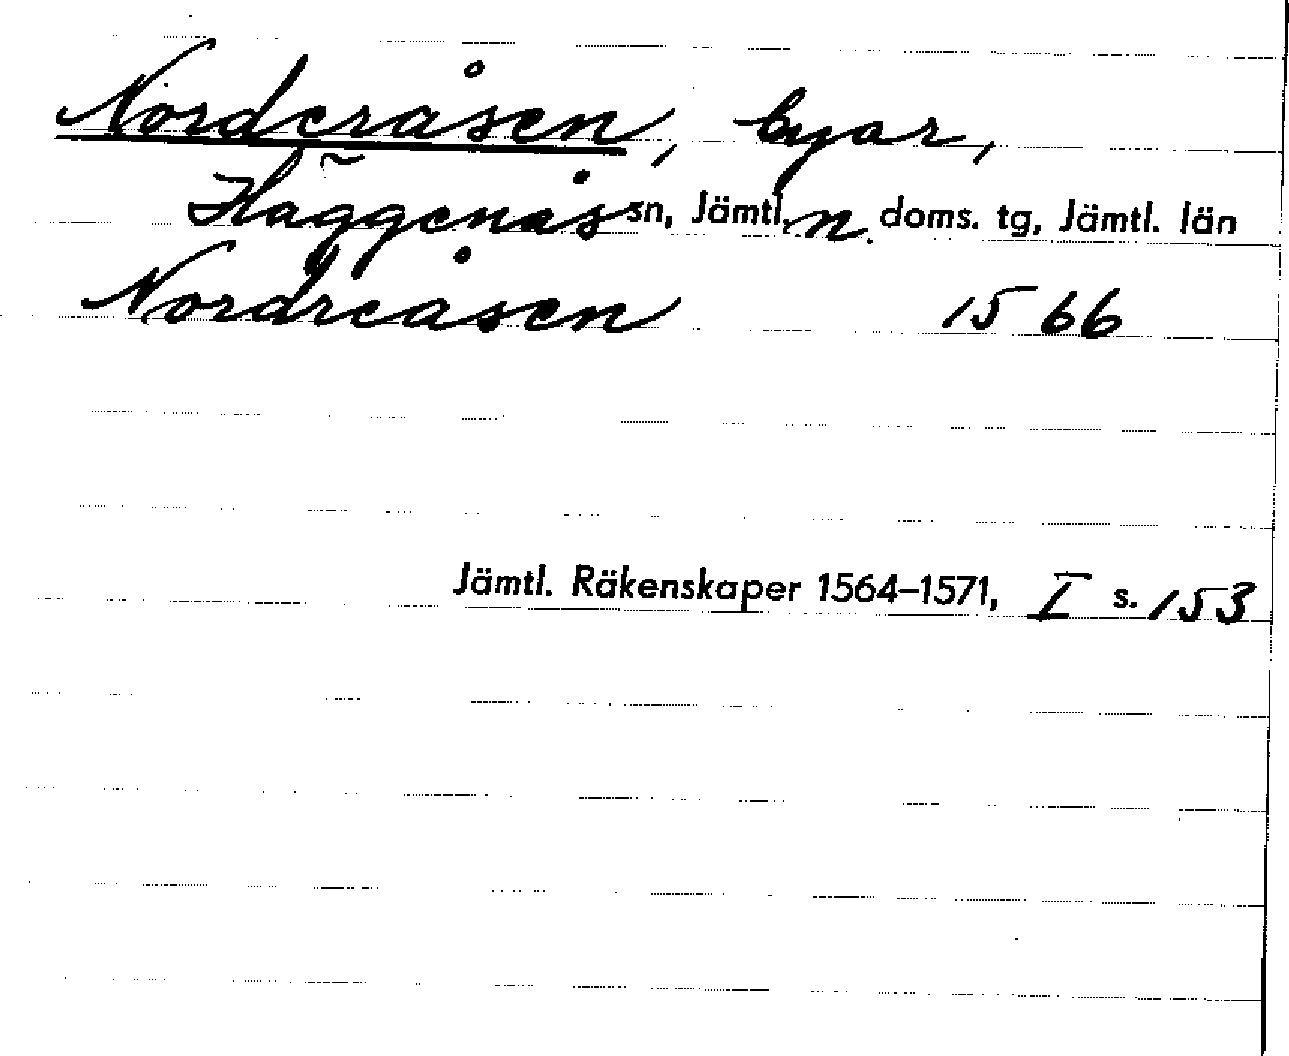 Norderåsen, byar,
Häggenås sn, Jämtl. n. doms. tg, Jämtl. län
Nordreåsen 1566
Jämtl. Räkenskaper 1564–1571, I s. 153